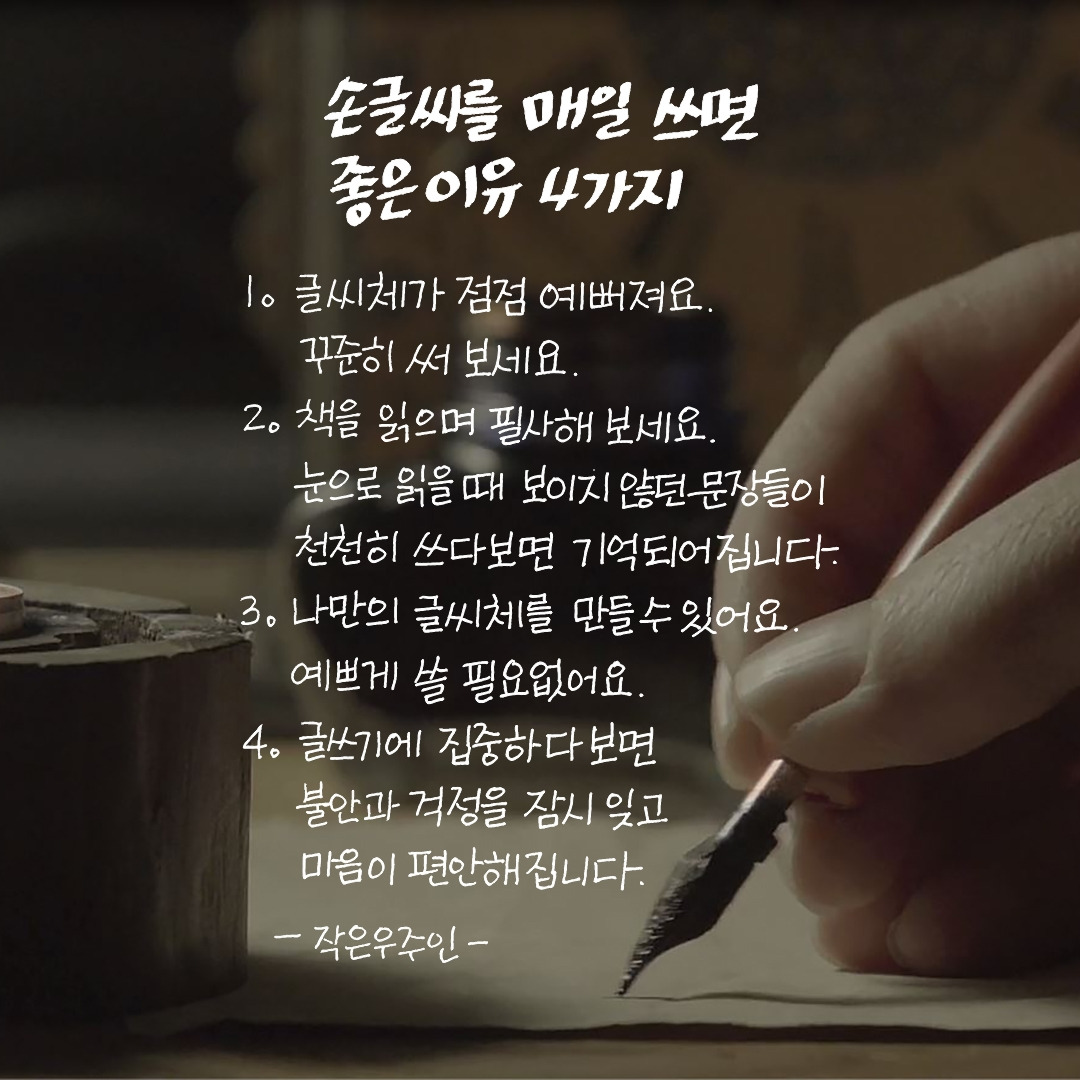 손글씨를 매일 쓰면
좋은 이유 4가지
1. 글씨체가 점점 예뻐져요.
꾸준히 써 보세요.
2. 책을 읽으며 필사해 보세요.
눈으로 읽을 때 보이지 않던 문장들이
천천히 쓰다보면 기억되어집니다.
3. 나만의 글씨체를 만들 수 있어요.
예쁘게 쓸 필요없어요.
4. 글쓰기에 집중하다보면
불안과 걱정을 잠시 잊고
마음이 편안해집니다.
- 작은우주인 -